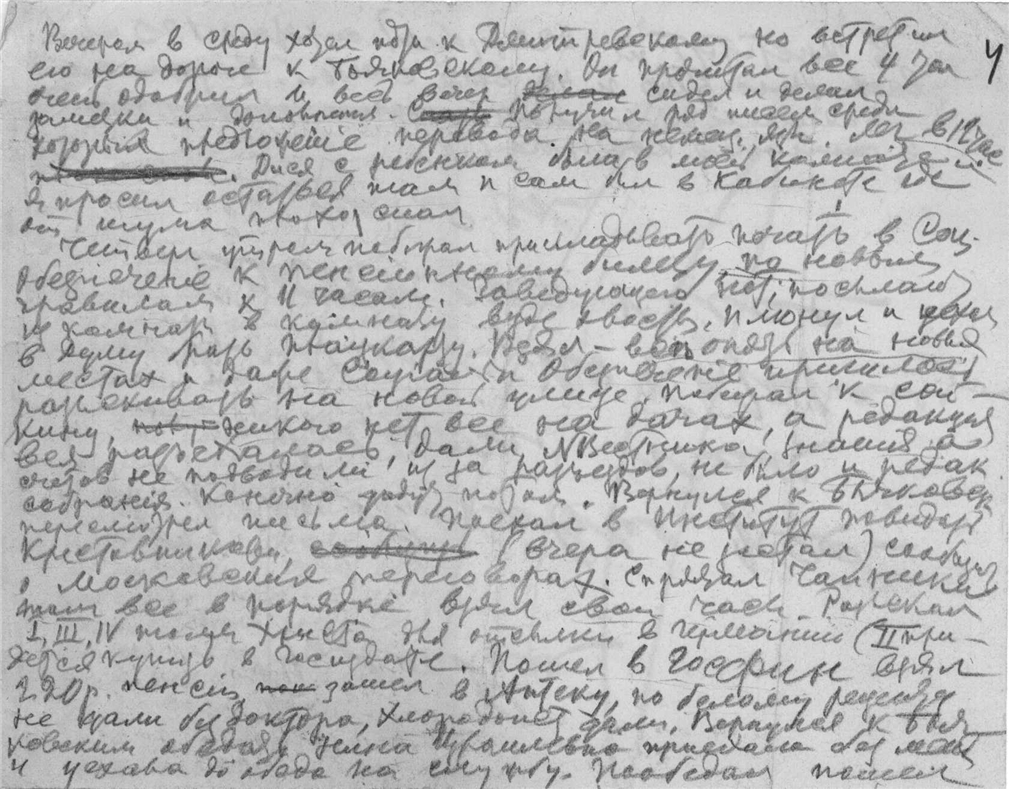 Вечером в среду хотел пойти к Дмитревскому но встретил 4
его на дороге к Бычковскому. Он прочитал все 4
очень одобрил и весь вечер сидел и делал
заметки и дополнения. Получил ряд писем среди
которых предложение перевода на немец. яз. Лег в
. Дися с ребенком была в моей комнате и
я просил остаться там и сам был в Кабинете где
от шума плохо спал
Четверг утром побежал прикладывать печать в Соц.
Обеспечение к пенсионному билету по новым
правилам к 11 часам. Заведующего нет, посылают
из комнаты в комнату везде хвосты, плюнул и
в Думу брать плацкарту. Взял – все опять на новых
местах и даже Социал. Обеспечение пришлось
разыскивать на новой улице. Побежал к Сой-
кину, никого нет все на дачах, а редакция
вся разъехалась, дали № Вестника знания, а
счетов не подводили, из за разъездов, не было и редак.
собрания. Конечно дадут потом. Вернулся к Бычковск.
пересмотрел письма. Поехал в Институт повидать
Крестовникова, (вчера не застал) сообщил
о Московских переговорах. Спрятал Чайники
там все в порядке взял свои часы.
I, III, IV тома Христа для отсылки в Германию (II при-
дется купить в Госиздате. Пошел в Госфин взял
220 р. пенсии зашел в Аптеку, по белому рецепту
не дали без доктора, хлородонт дали. Вернулся к Быч
ковским обедать Нина Измаиловна приехала без меня
и уехала до обеда на службу. Пообедал пошел